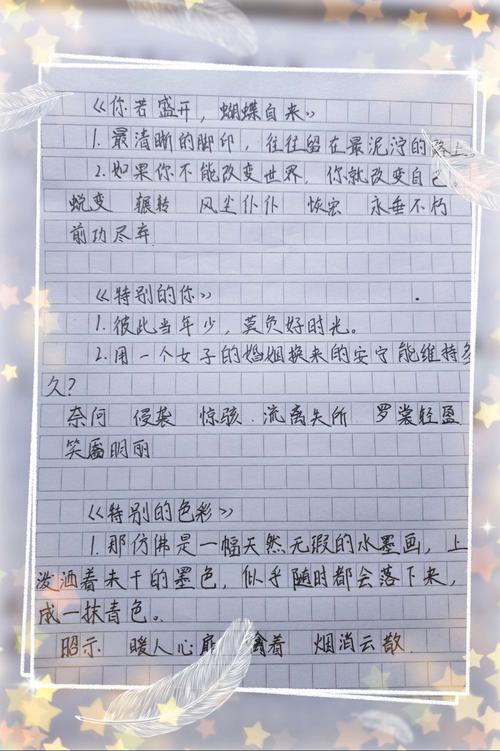 《你若盛开，蝴蝶自来》
1. 最清晰的脚印，往往留在最泥泞的路上
2. 如果你不能改变世界，你就改变自己。
蜕变 辗转 风尘仆仆 恢宏 永垂不朽
前功尽弃
《特别的你》
1. 彼此当年少，莫负好时光。
2. 用一个女子的婚姻换来的安宁能维持多
久?
奈何 侵袭 惊骇 流离失所 罗裳轻盈
笑靥明丽
《特别的色彩》
1. 那仿佛是一幅天然无瑕的水墨画，上
泼洒着未干的墨色，似乎随时都会落下来，
成一抹青色。
昭示 暖人心扉 着 烟消云散